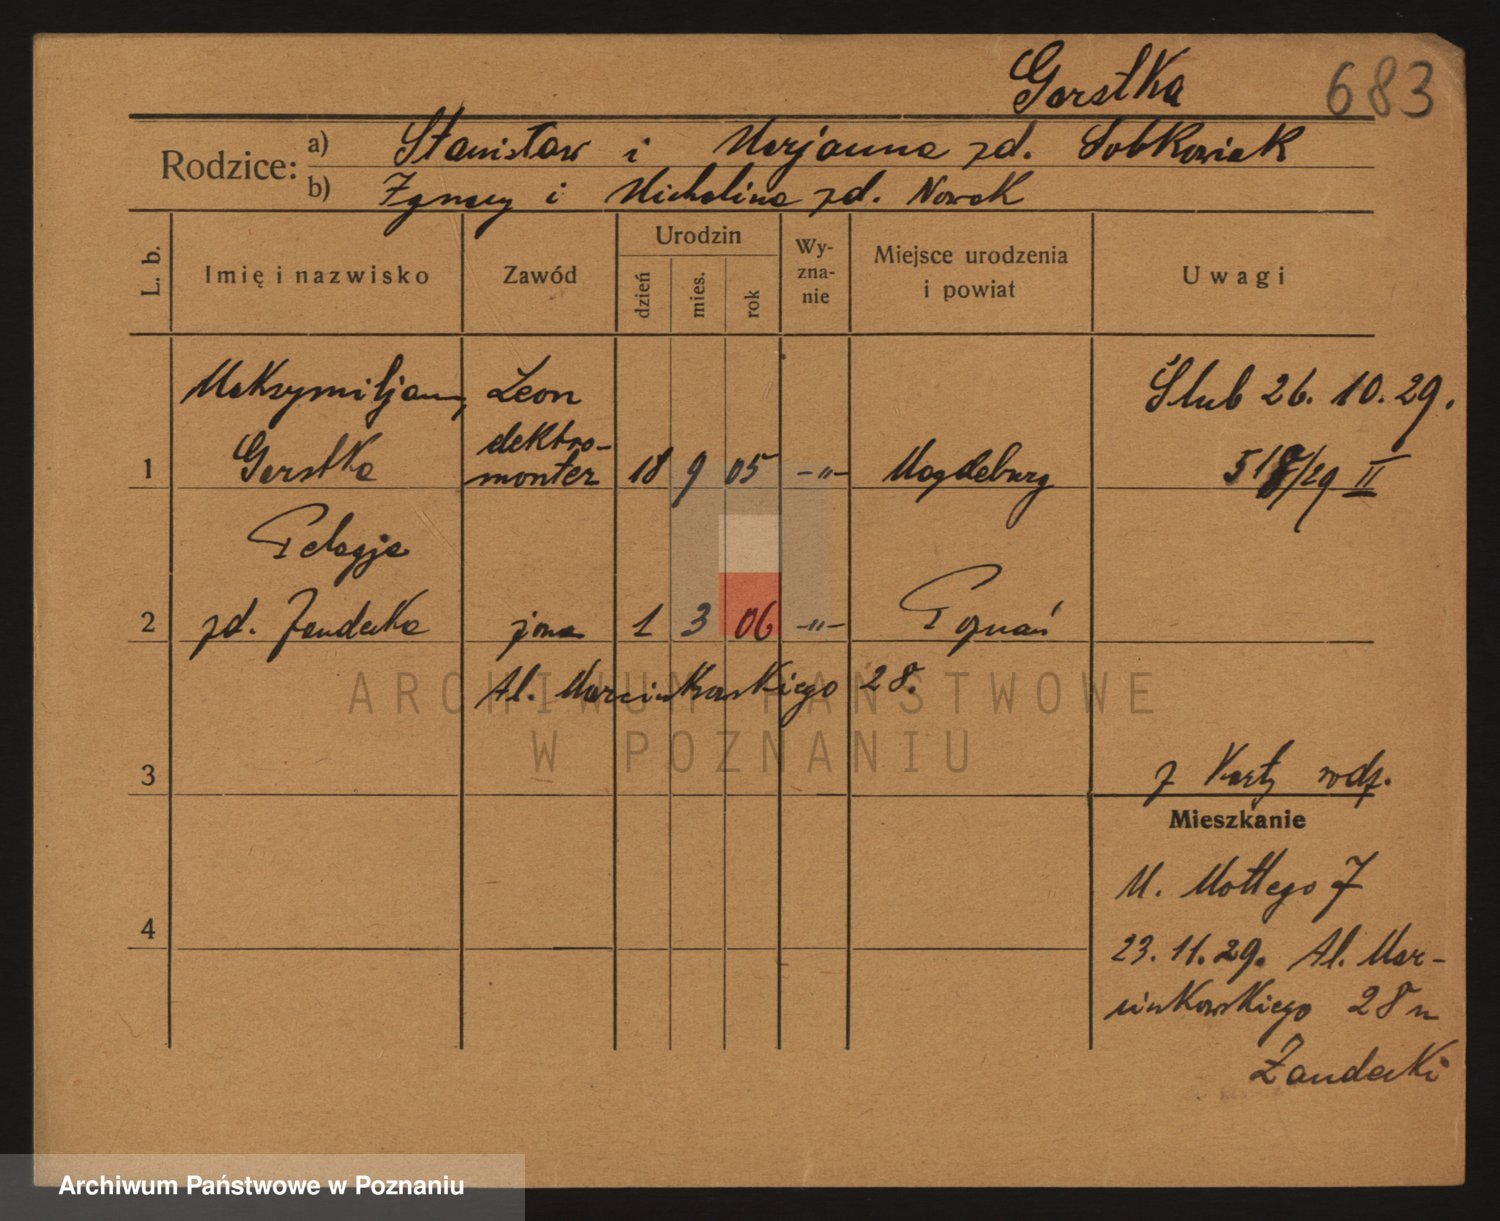 Garstka 683
Rodzice: a) Stanisław i Marjanna zd. Sobkowiak
b) Ignacy i Michalina zd. Nowak
L. b. Imię i nazwisko Zawód Urodzin dzień mies. rok Wy-zna-nie Miejsce urodzenia i powiat Uwagi
Maksymiljan, Leon Ślub 26. 10. 29.
1 Garstka elektro-monter 18 9 05 -"- Magdeburg /29 II
Pelagja
2 zd. Żandecka żona 1 3 06 -"- Poznań
Al. Marcinkowskiego 28.
ARCHIWUM PAŃSTWOWE
W POZNANIU
3 z Karty rodz.
Mieszkanie
M. Mottego 7
4
23. 11. 29. Al. Mar-
cinkowskiego 28 u
Żandecki
Archiwum Państwowe w Poznaniu